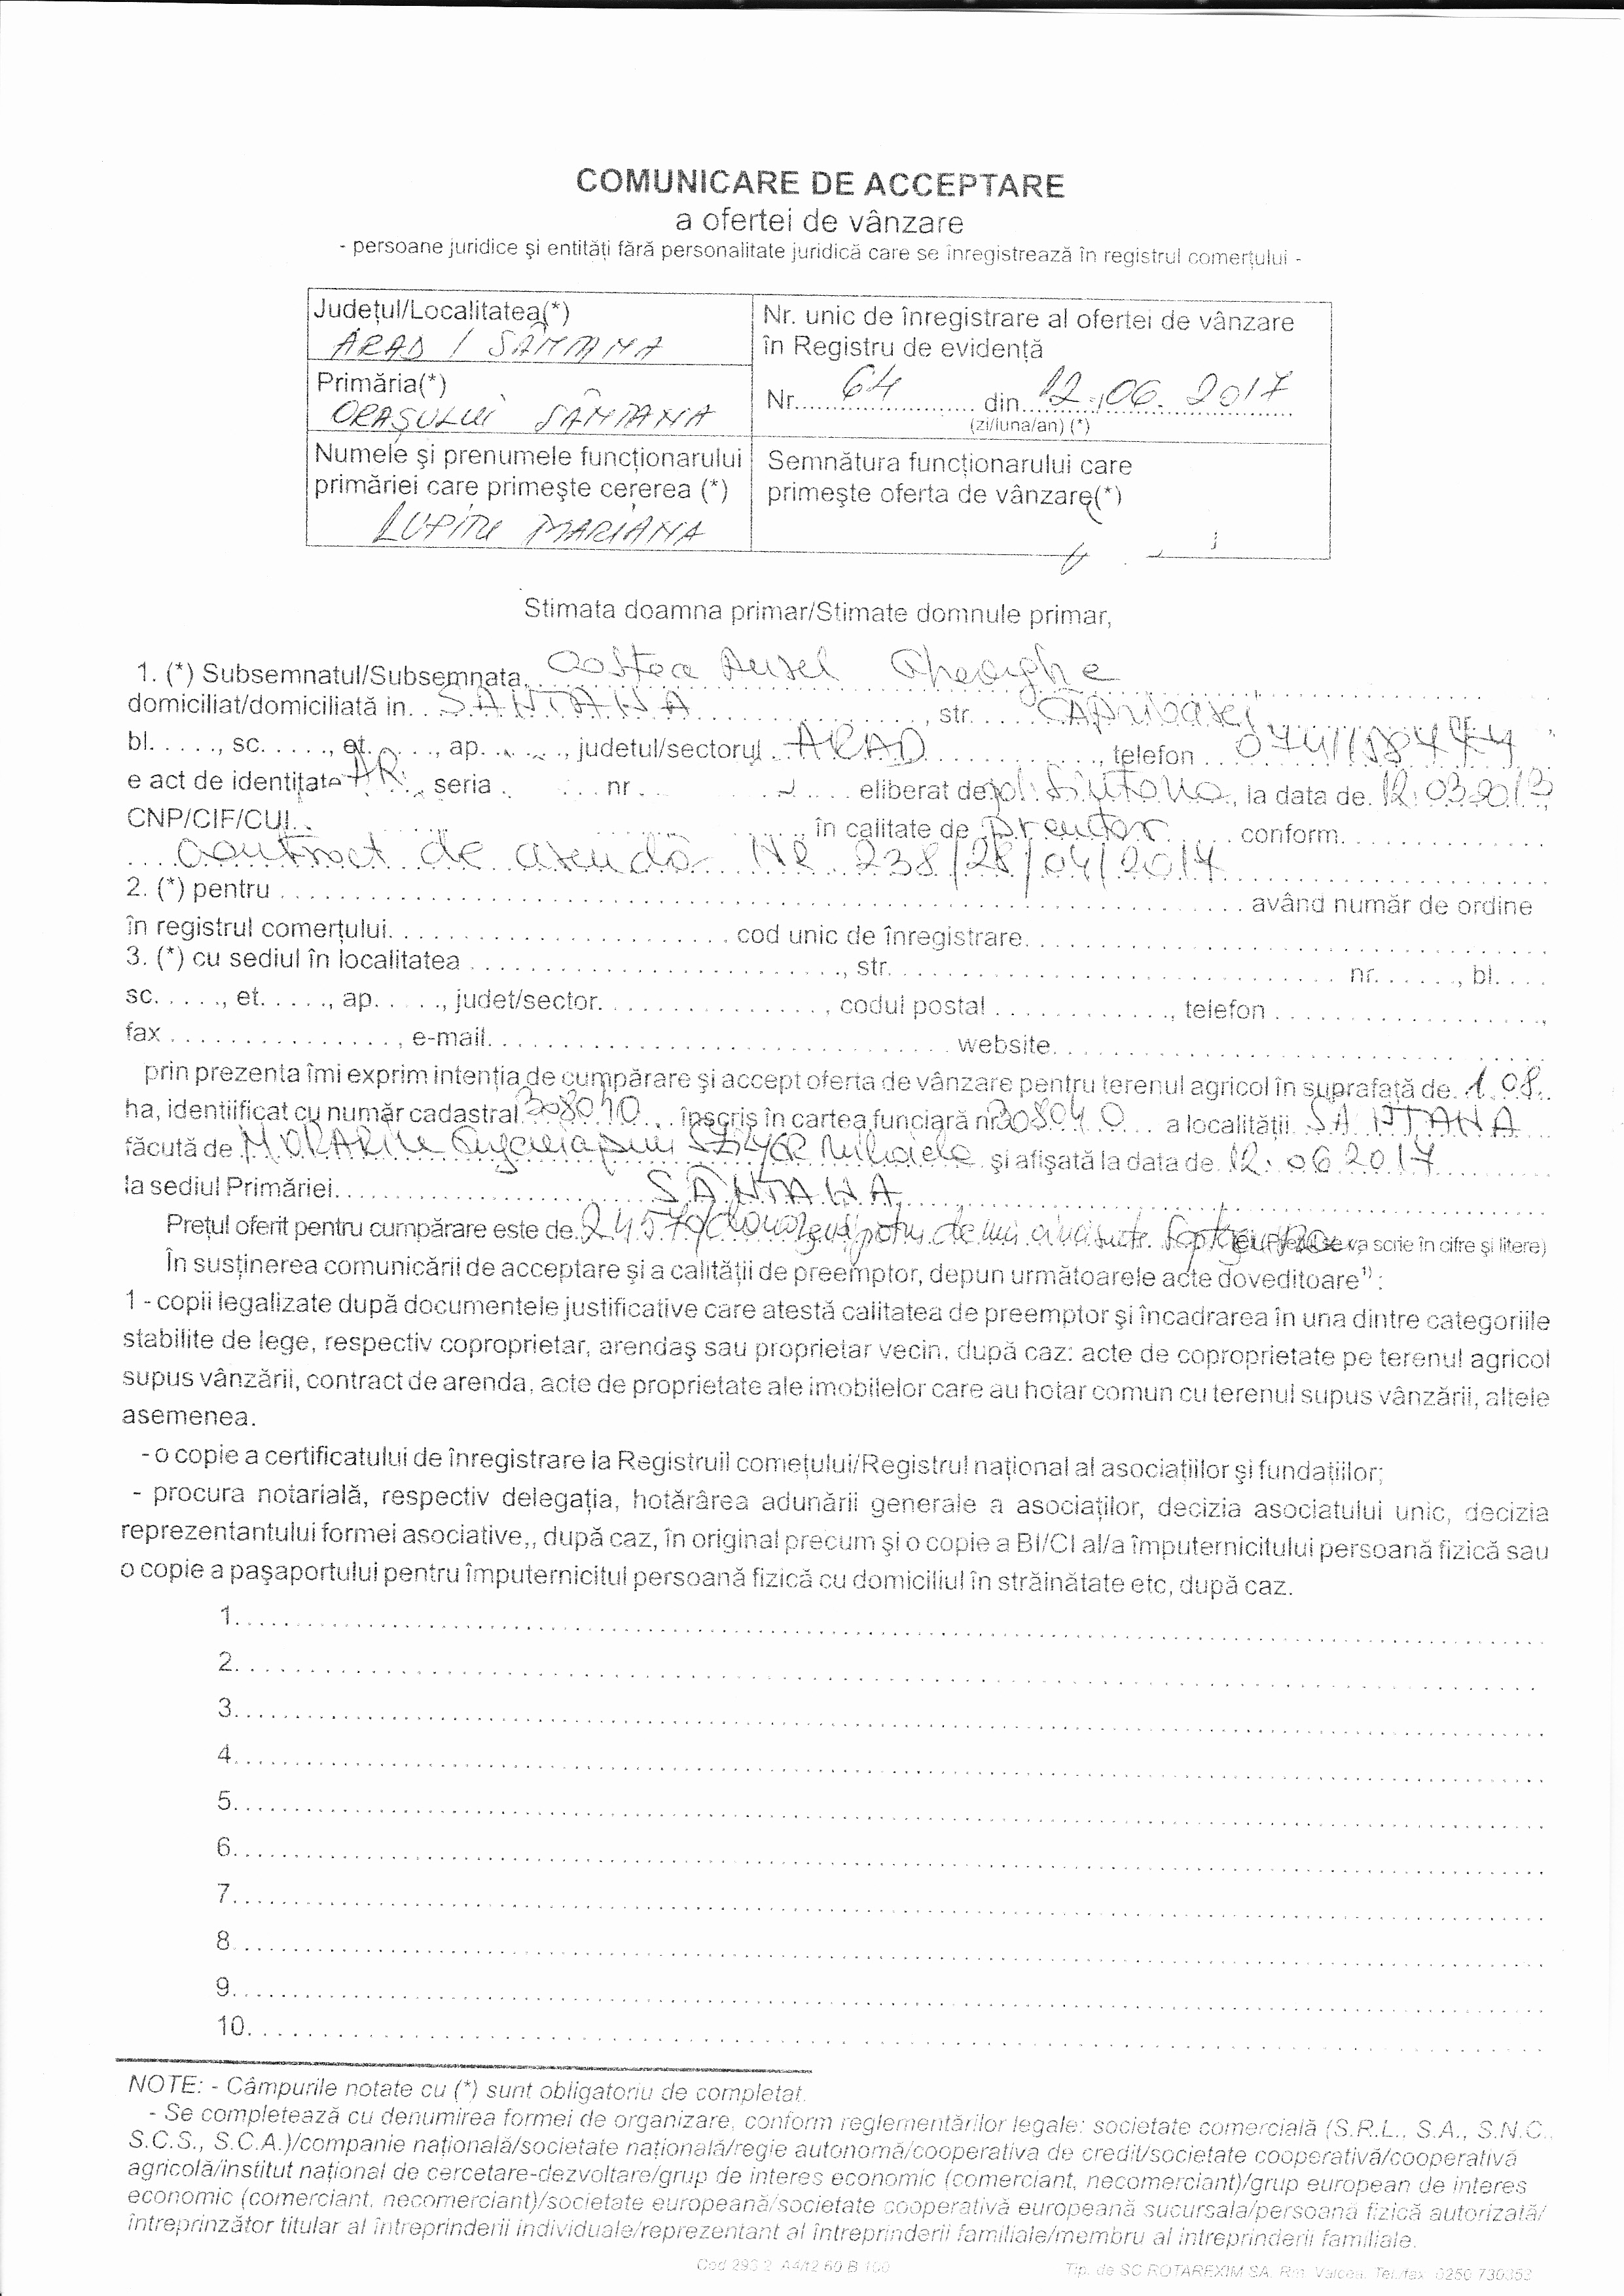 COMUNICARE DE ACCEPTARE
a ofertei de vânzare
- persoane juridice şi entităţi fără personalitate juridică care se înregistrează în registrul comerţului -
Judeţul/Localitatea(*)
ARAD / SÂNTANA
Nr. unic de înregistrare al ofertei de vânzare
în Registru de evidenţă
Primăria(*)
ORAŞULUI SÂNTANA
Nr. 64 din 12.06.2017
(zi/luna/an) (*)
Numele şi prenumele funcţionarului
primăriei care primeşte cererea (*)
LUPITU MARIANA
Semnătura funcţionarului care
primeşte oferta de vânzare(*)
Stimata doamna primar/Stimate domnule primar,
1. (*) Subsemnatul/Subsemnata, Costea Aurel Gheorghe
domiciliat/domiciliată in SANTANA, str.
bl. . . . ., sc. . . . ., et. . . . ., ap. . . . ., judetul/sectorul ARAD, telefon
e act de identitate AR, seria . . . nr . . . eliberat de pol. Sintana, la data de 12.03.2013
CNP/CIF/CUI. . . . în calitate de conform. . . . .
contract de arendă Nr 238/28/04/2017
2. (*) pentru . . . . . având număr de ordine
în registrul comerţului. . . . . cod unic de înregistrare. . . . .
3. (*) cu sediul în localitatea . . . . ., str. . . . . nr. . . . ., bl. . . .
sc. . . . ., et. . . . ., ap. . . . ., judet/sector. . . . ., codul postal . . . . ., telefon . . . . .,
fax . . . . ., e-mail. . . . . website. . . . .
prin prezenta îmi exprim intenţia de cumpărare şi accept oferta de vânzare pentru terenul agricol în suprafaţă de 1.08
ha, identiificat cu număr cadastral 308040 înscris în cartea funciară nr 308040 a localităţii SANTANA
făcută de MORARIU Mihaela şi afişată la data de 12.06.2017
la sediul Primăriei SÂNTANA
Preţul oferit pentru cumpărare este de 24570 va scrie în cifre şi litere)
În susţinerea comunicării de acceptare şi a calităţii de preemptor, depun următoarele acte doveditoare¹⁾ :
1 - copii legalizate după documentele justificative care atestă calitatea de preemptor şi încadrarea în una dintre categoriile
stabilite de lege, respectiv coproprietar, arendaş sau proprietar vecin, după caz: acte de coproprietate pe terenul agricol
supus vânzării, contract de arenda, acte de proprietate ale imobilelor care au hotar comun cu terenul supus vânzării, altele
asemenea.
- o copie a certificatului de înregistrare la Registruil comeţului/Registrul naţional al asociaţiilor şi fundaţiilor;
- procura notarială, respectiv delegaţia, hotărârea adunării generale a asociaţilor, decizia asociatului unic, decizia
reprezentantului formei asociative,, după caz, în original precum şi o copie a BI/CI al/a împuternicitului persoană fizică sau
o copie a paşaportului pentru împuternicitul persoană fizică cu domiciliul în străinătate etc, după caz.
1. . . . .
2. . . . .
3. . . . .
4. . . . .
5. . . . .
6. . . . .
7. . . . .
8. . . . .
9. . . . .
10. . . . .
NOTE: - Câmpurile notate cu (*) sunt obligatoriu de completat.
- Se completează cu denumirea formei de organizare, conform reglementărilor legale: societate comercială (S.R.L., S.A., S.N.C.,
S.C.S., S.C.A.)/companie naţională/societate naţională/regie autonomă/cooperativa de credit/societate cooperativă/cooperativă
agricolă/institut naţional de cercetare-dezvoltare/grup de interes economic (comerciant, necomerciant)/grup european de interes
economic (comerciant, necomerciant)/societate europeană/societate cooperativă europeană sucursala/persoană fizică autorizată/
întreprinzător titular al întreprinderii individuale/reprezentant al întreprinderii familiale/membru al intreprinderii familiale.
Tip. de SC ROTAREXIM SA, Rm. Valcea, Tel./fax: 0250 730353